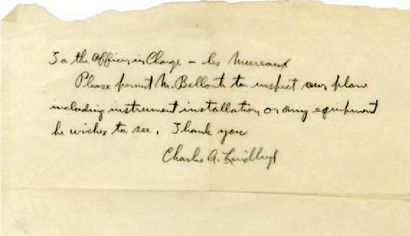 To the Officer in Charge – Les Mureaux
Please permit M. Bellonte to inspect our plane
including instrument installation or any equipment
he wishes to see. Thank you
Charles A. Lindbergh